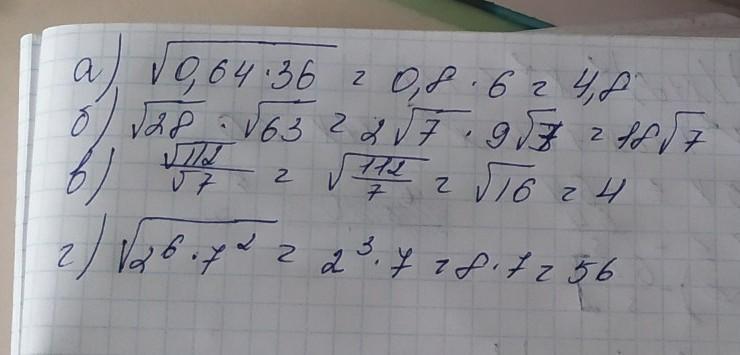 а) √0,64·36 = 0,8 · 6 = 4,8
б) √28 · √63 = 2√7 · 9√7 = 18√7
в) √112/√7 = √112/7 = √16 = 4
г) √2⁶·7² = 2³·7 = 8·7 = 56